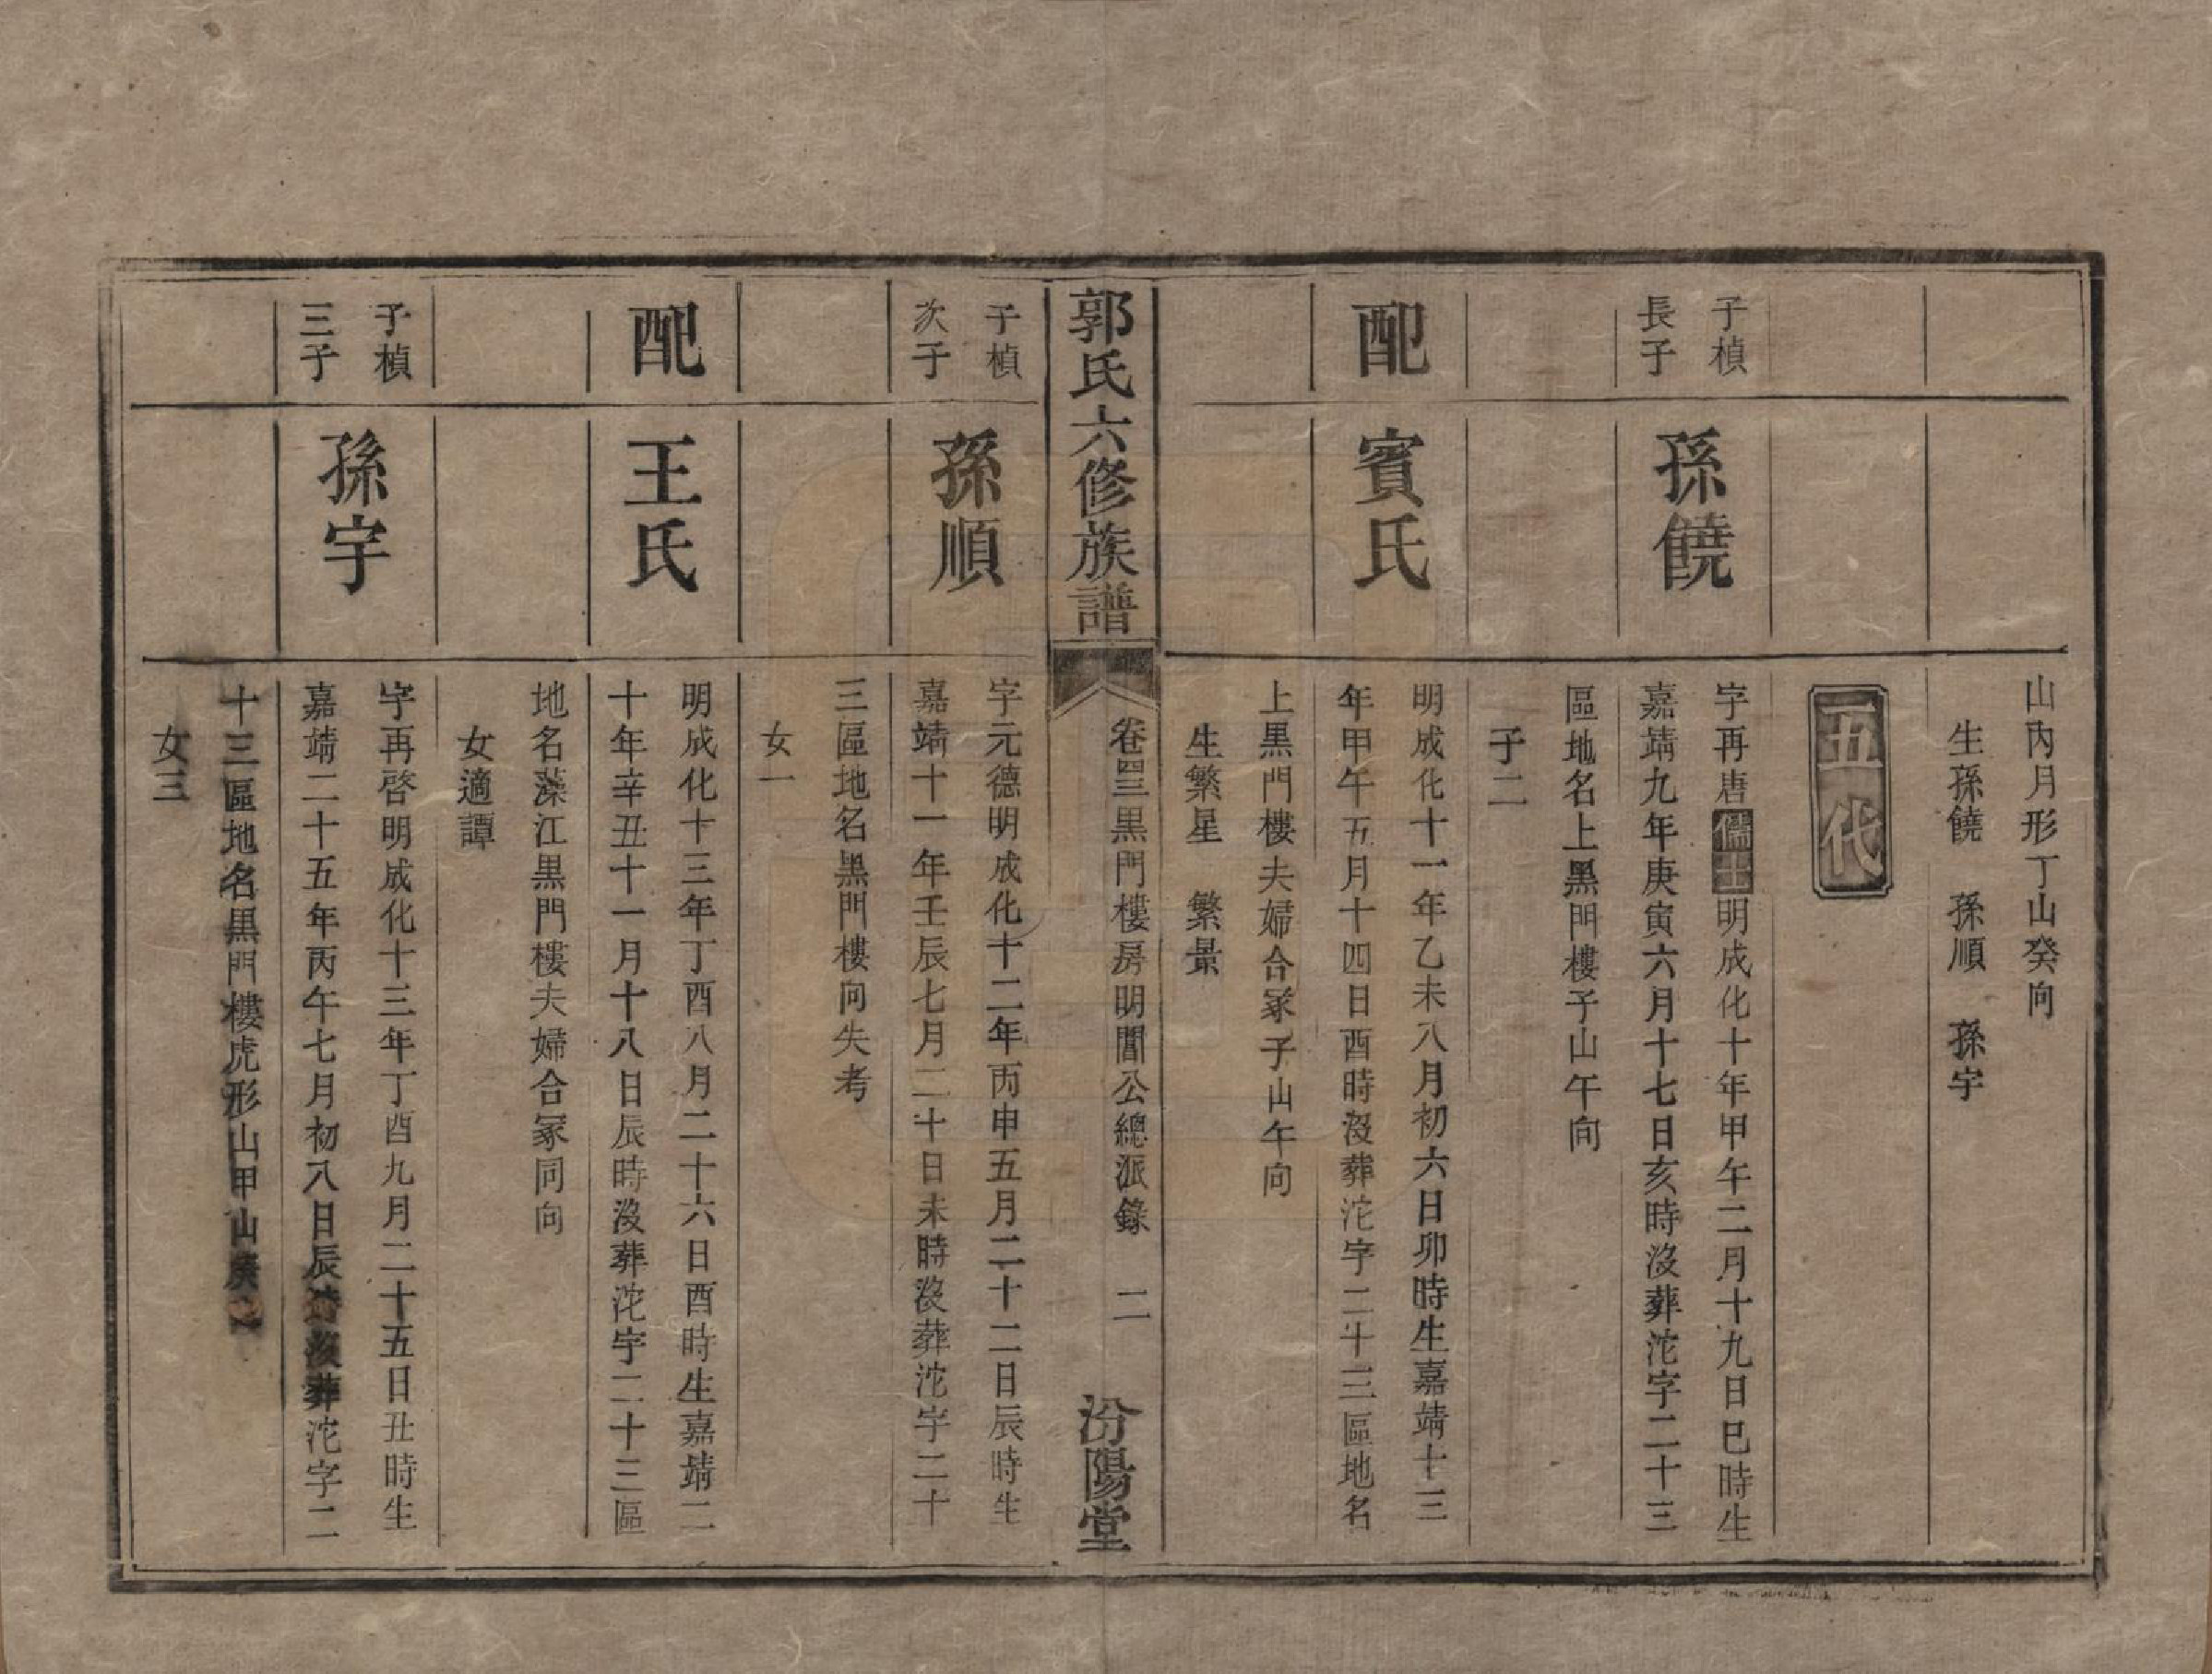 山內月形丁山癸向
生孫饒　孫順　孫宇
五代
子楨
長子
孫饒
字再唐儒士明成化十年甲午二月十九日巳時生
嘉靖九年庚寅六月十七日亥時沒葬沱字二十三
區地名上黑門樓子山午向
子二
配
賓氏
明成化十一年乙未八月初六日卯時生嘉靖十三
年甲午五月十四日酉時沒葬沱字二十三區地名
上黑門樓夫婦合冢子山午向
生繁星　繁景
郭氏六修族譜
卷四三黑門樓房明閶公總派錄　二
汾陽堂
子楨
次子
孫順
字元德明成化十二年丙申五月二十二日辰時生
嘉靖十一年壬辰七月二十日未時沒葬沱字二十
三區地名黑門樓向失考
女一
配
王氏
明成化十三年丁酉八月二十六日酉時生嘉靖二
十年辛丑十一月十八日辰時沒葬沱字二十三區
地名藻江黑門樓夫婦合冢同向
女適譚
子楨
三子
孫宇
字再啓明成化十三年丁酉九月二十五日丑時生
嘉靖二十五年丙午七月初八日辰時沒葬沱字二
十三區地名黑門樓虎形山甲山庚
女三